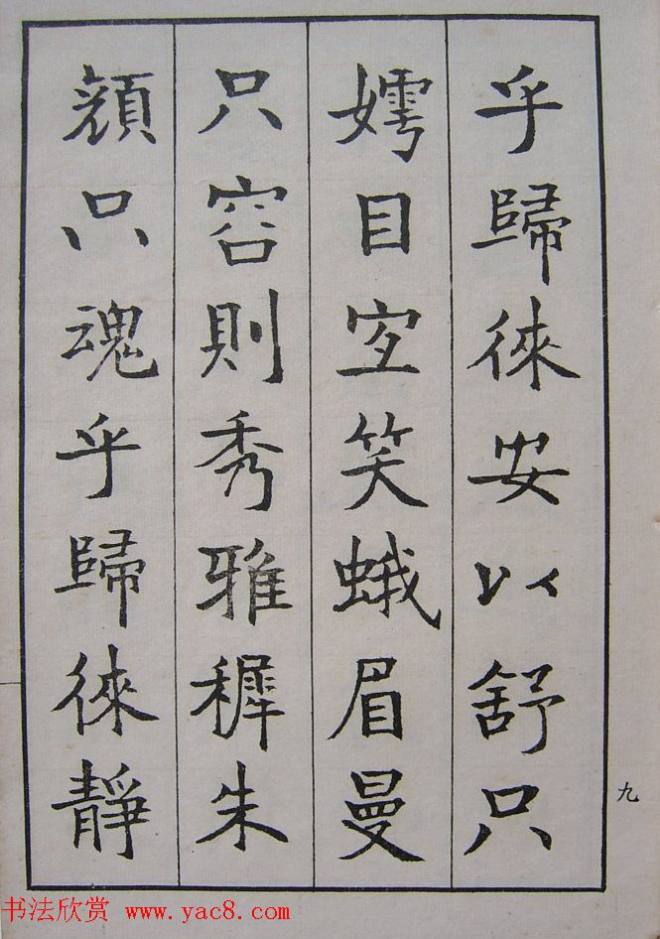 乎歸徠安以舒只
嫮目宜笑蛾眉曼
只容則秀雅穉朱
顔只魂乎歸徠靜
九
书法欣赏 www.yac8.com